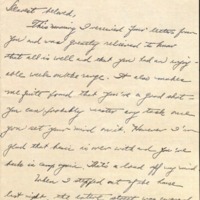 Dearest beloved,
This morning I received your letter from
you and was greatly relieved to know
that all is well and that you had an enjoy-
able week on the range. It also makes
me quite proud that you're a good shot -
you can probably master any task once
you set your mind on it. However I'm
glad that basic is over with and you're
back in camp again. That's a load off my mind
When I stepped out of the house
last night, the entire street was covered